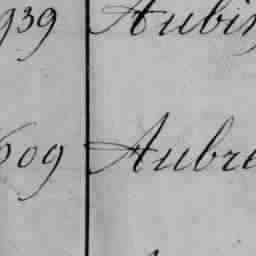 939 Aubin
609 Aubre